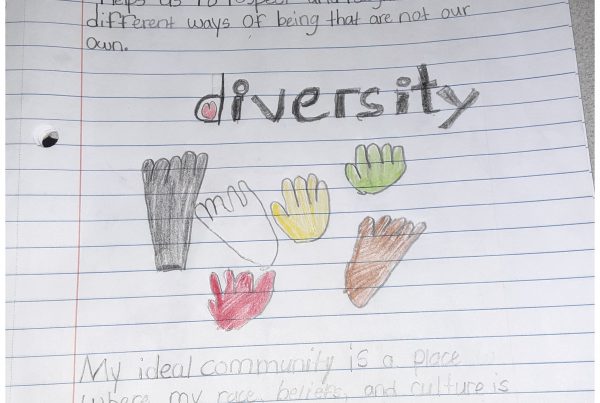 different ways of being that are not our
own.
diversity
My ideal community is a place
where my race, beliefs, and culture is